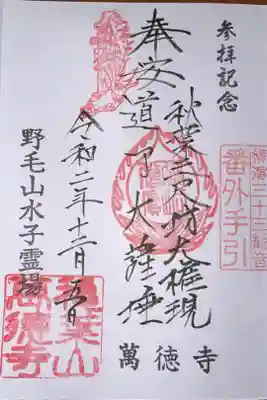 参拝記念
横濱三十三観音
番外手引
秋葉三尺坊大権現
奉安道了大薩埵
萬徳寺
令和二年十二月五日
野毛山水子霊場
秋葉山
萬徳寺